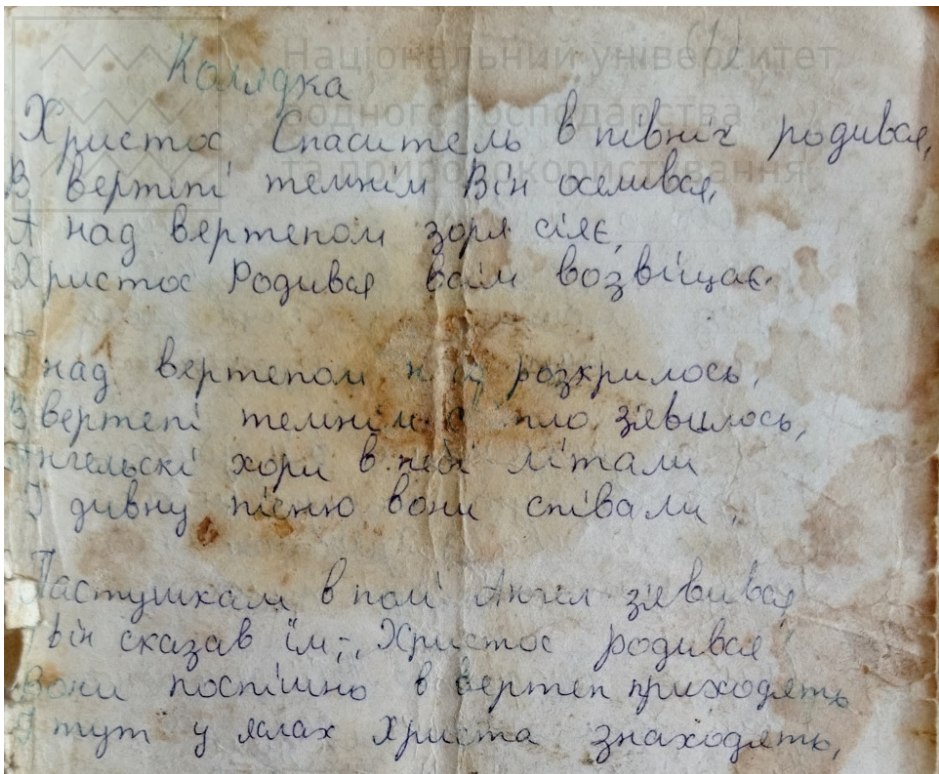 (1)
Національний університет
водного господарства
та природокористування
Колядка
Христос Спаситель в північ родився,
В вертепі темнім Він оселився,
А над вертепом зоря сіяє,
Христос Родився всім возвіщає.
І над вертепом розкрилось,
В вертепі темнім зявилось,
Ангельскі хори в небі літали
І дивну пісню вони співали,
Пастушкам в полі Ангел зявився
І він сказав їм;,, Христос родився
Вони поспішно в вертеп приходять
І тут у яслах Христа знаходять,